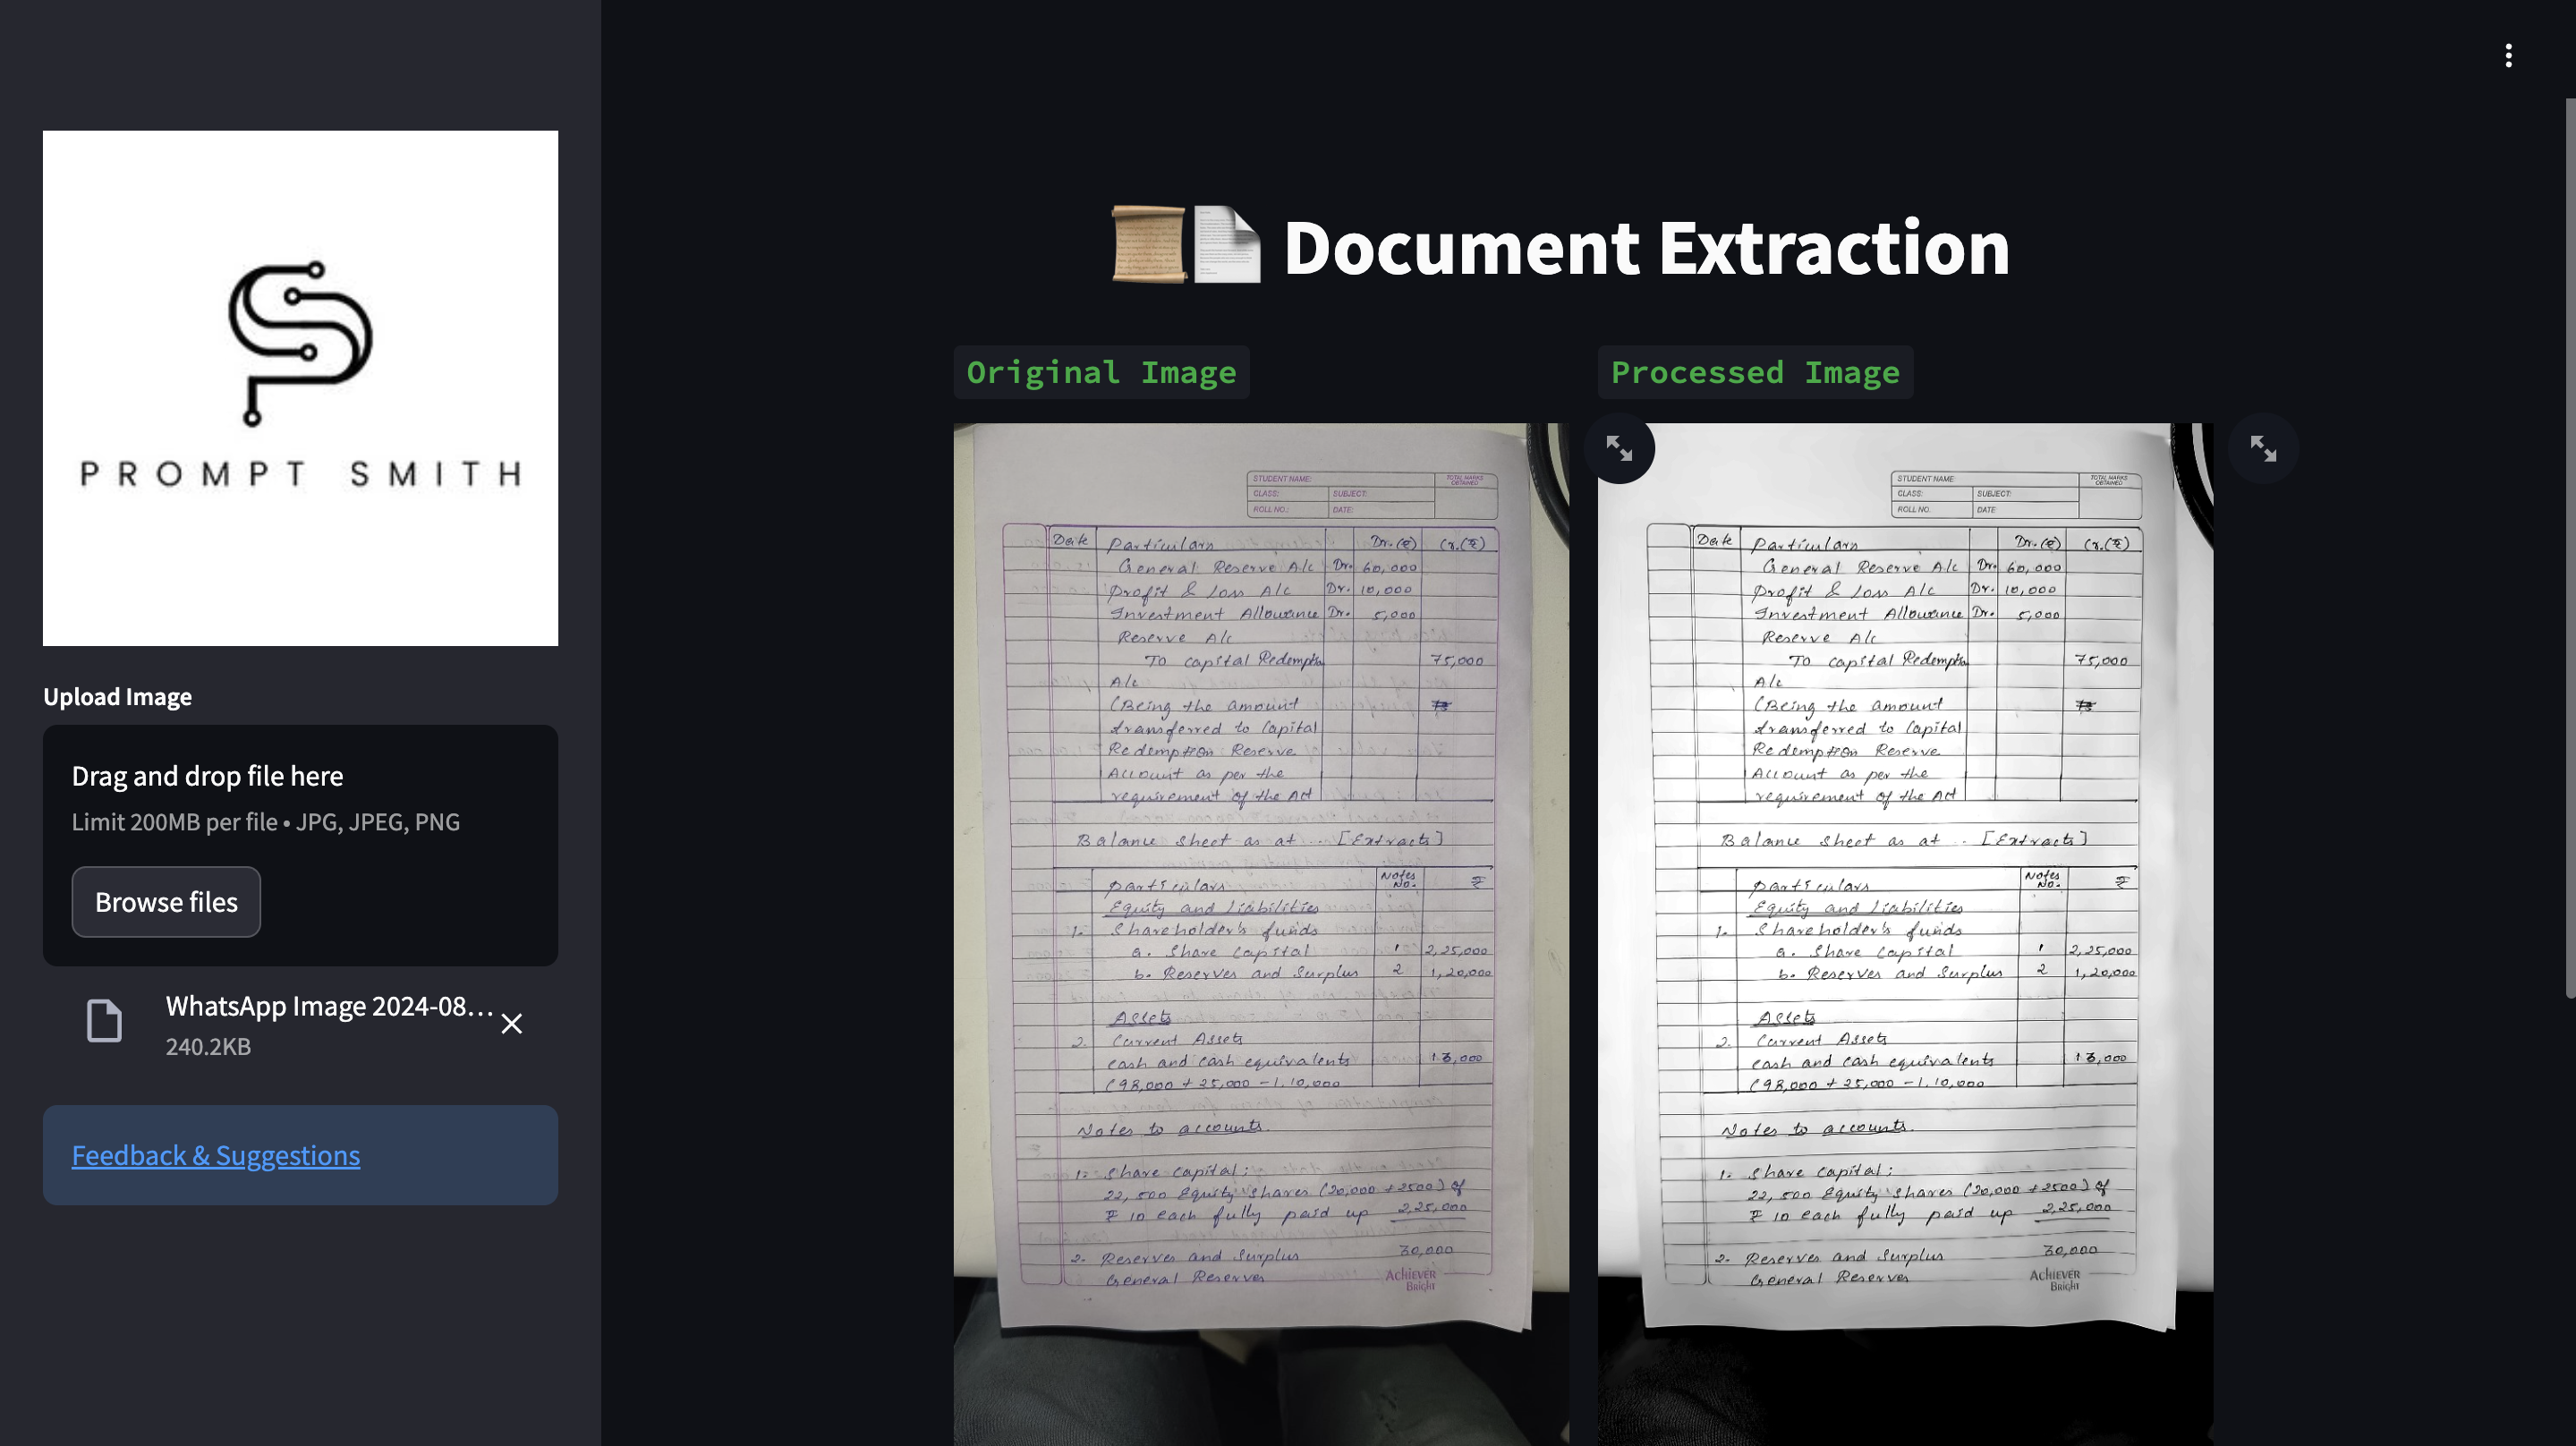 PROMPT SMITH
Upload Image
Drag and drop file here
Limit 200MB per file • JPG, JPEG, PNG
Browse files
WhatsApp Image 2024-08...
240.2KB
Feedback & Suggestions
Document Extraction
Original Image
STUDENT NAME:
TOTAL MARKS OBTAINED
CLASS:
SUBJECT:
ROLL NO.:
DATE:
Date Particulars Dr.(₹) Cr.(₹)
General Reserve A/c Dr. 60,000
Profit & Loss A/c Dr. 10,000
Investment Allowance Dr. 5,000
Reserve A/c
To Capital Redemptn 75,000
A/c
(Being the amount
transferred to Capital
Redemption Reserve
Account as per the
requirement of the Act
Balance sheet as at .. [Extracts]
Particulars Notes No. ₹
Equity and Liabilities
1. Shareholder's funds
a. Share Capital 1 2,25,000
b. Reserves and Surplus 2 1,20,000
Assets
2. Current Assets
cash and cash equivalents 13,000
(98,000 + 25,000 - 1,10,000
Notes to accounts.
1. Share capital:
22,500 Equity shares (20,000 + 2500) of
₹ 10 each fully paid up 2,25,000
2. Reserves and Surplus 30,000
General Reserves
AchiEVER
Bright
Processed Image
STUDENT NAME:
TOTAL MARKS OBTAINED
CLASS:
SUBJECT:
ROLL NO.
DATE
Date Particulars Dr.(₹) Cr.(₹)
General Reserve A/c Dr. 60,000
Profit & Loss A/c Dr. 10,000
Investment Allowance Dr. 5,000
Reserve A/c
To Capital Redemptn 75,000
A/c
(Being the amount
transferred to Capital
Redemption Reserve
Account as per the
requirement of the Act
Balance sheet as at .. [Extracts]
Particulars Notes No. ₹
Equity and Liabilities
1. Shareholder's funds
a. Share Capital 1 2,25,000
b. Reserves and Surplus 2 1,20,000
Assets
2. Current Assets
cash and cash equivalents 13,000
(98,000 + 25,000 - 1,10,000
Notes to accounts.
1. Share capital:
22,500 Equity shares (20,000 + 2500) of
₹ 10 each fully paid up 2,25,000
2. Reserves and Surplus 30,000
General Reserves
AchiEVER
Bright